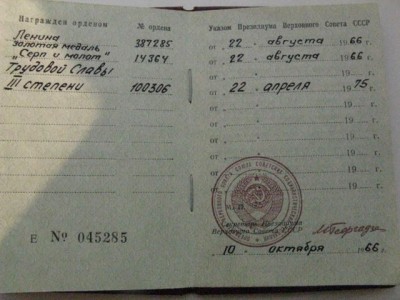 Награжден орденом
№ ордена
Ленина 387285
Золотая медаль
"Серп и молот" 14364
Трудовой Славы
III степени 100306
Е № 045285
Указом Президиума Верховного Совета СССР
от 22 . августа 1966 г.
от 22 . августа 1966 г.
от . 19 г.
от 22 . апреля 1975 г.
от . 19 г.
от . 19 г.
от . 19 г.
от . 19 г.
19 г.
М. П.
Секретарь Президиума
Верховного Совета СССР
10 . октября 1966 г.